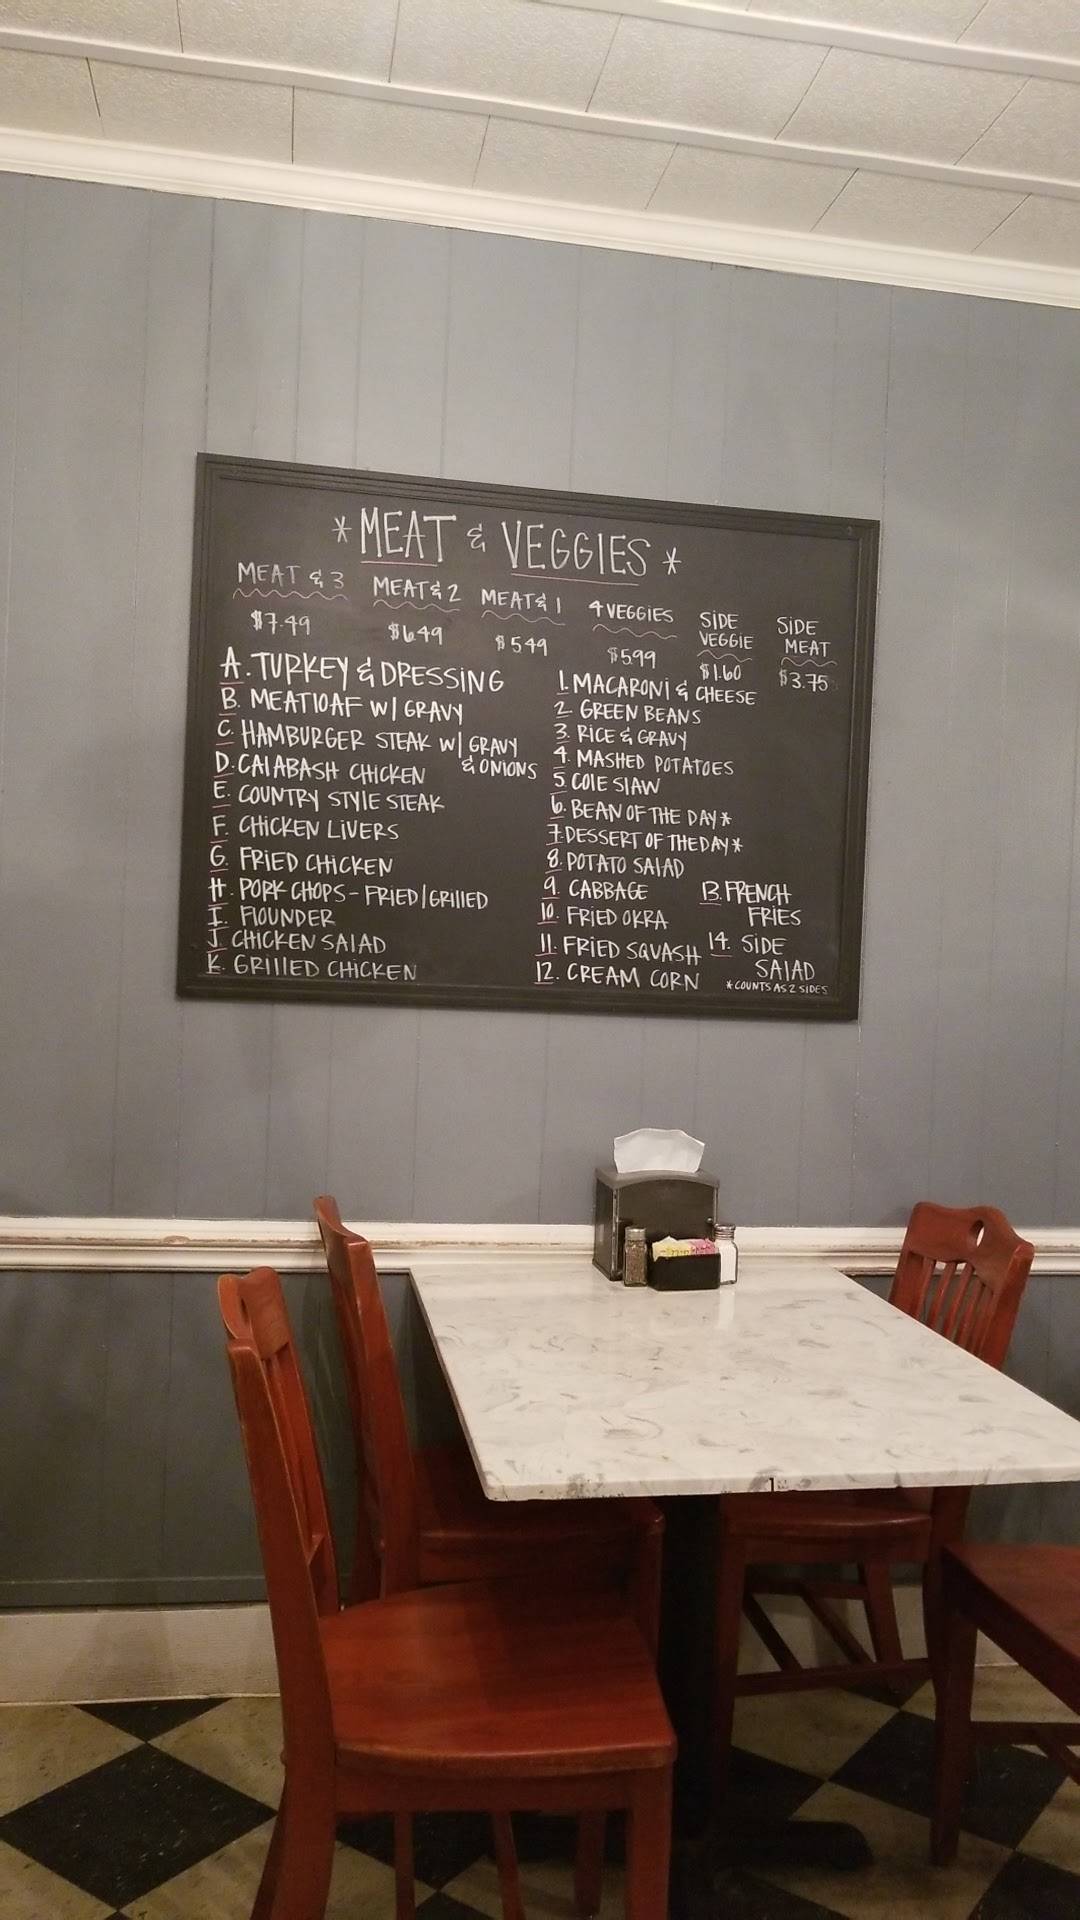 *MEAT & VEGGIES*
MEAT & 3 MEAT & 2 MEAT & 1 4 VEGGIES SIDE VEGGIE SIDE MEAT
$7.49 $6.49 $5.49 $5.99 $1.60 $3.75
A. TURKEY & DRESSING
B. MEATLOAF W/ GRAVY
C. HAMBURGER STEAK W/ GRAVY
& ONIONS
D. CALABASH CHICKEN
E. COUNTRY STYLE STEAK
F. CHICKEN LIVERS
G. FRIED CHICKEN
H. PORK CHOPS - FRIED/GRILLED
I. FLOUNDER
J. CHICKEN SALAD
K. GRILLED CHICKEN
1. MACARONI & CHEESE
2. GREEN BEANS
3. RICE & GRAVY
4. MASHED POTATOES
5. COLE SLAW
6. BEAN OF THE DAY*
7. DESSERT OF THE DAY*
8. POTATO SALAD
9. CABBAGE
10. FRIED OKRA
11. FRIED SQUASH
12. CREAM CORN
13. FRENCH
FRIES
14. SIDE
SALAD
*COUNTS AS 2 SIDES